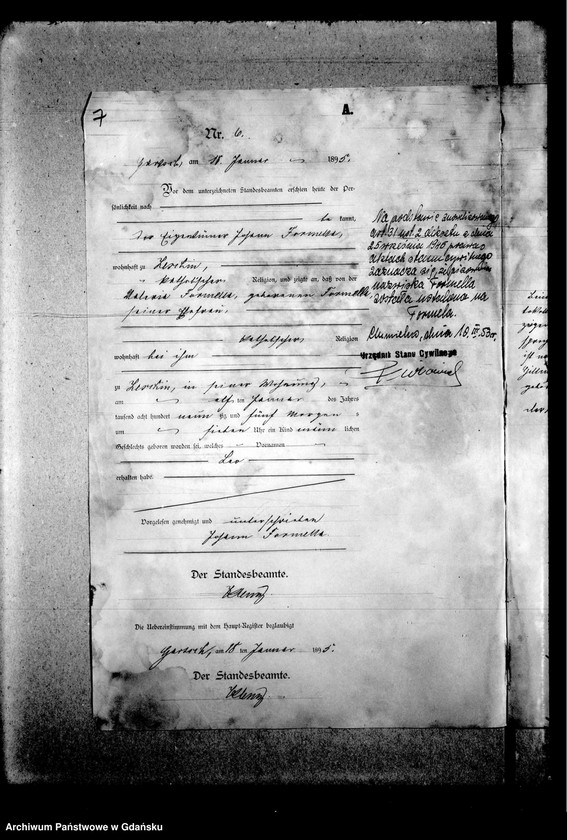 7
A.
Nr. 6.
am 18. Januar 1895.
Vor dem unterzeichneten Standesbeamten erschien heute der Per-
sönlichkeit nach
be kannt,
der Eigenthümer Johann Formella,
wohnhaft zu
katholischer Religion, und zeigte an, daß von der
Valeria Formella, geborenen Formella
seiner Ehefrau,
katholischer Religion
wohnhaft bei ihm
zu in seiner Wohnung,
am elf ten Januar des Jahres
tausend acht hundert neun zig und fünf Morgens
um sieben Uhr ein Kind männ lichen
Geschlechts geboren worden sei, welches Vornamen
Leo
erhalten habe.
Vorgelesen, genehmigt und unterschrieben
Johann Formella.
Der Standesbeamte.
Die Uebereinstimmung mit dem Haupt-Register beglaubigt
am 18 ten Januar 1895.
Der Standesbeamte.
Na podstawie
art. 31 ust. 2 dekretu z dnia
25 września 1945 prawo
o aktach stanu cywilnego
zaznacza się, że pisownia
nazwiska Formella
została ustalona na
Formela.
Chmielno, dnia 10. III. 53 r.
Urzędnik Stanu Cywilnego
Archiwum Państwowe w Gdańsku